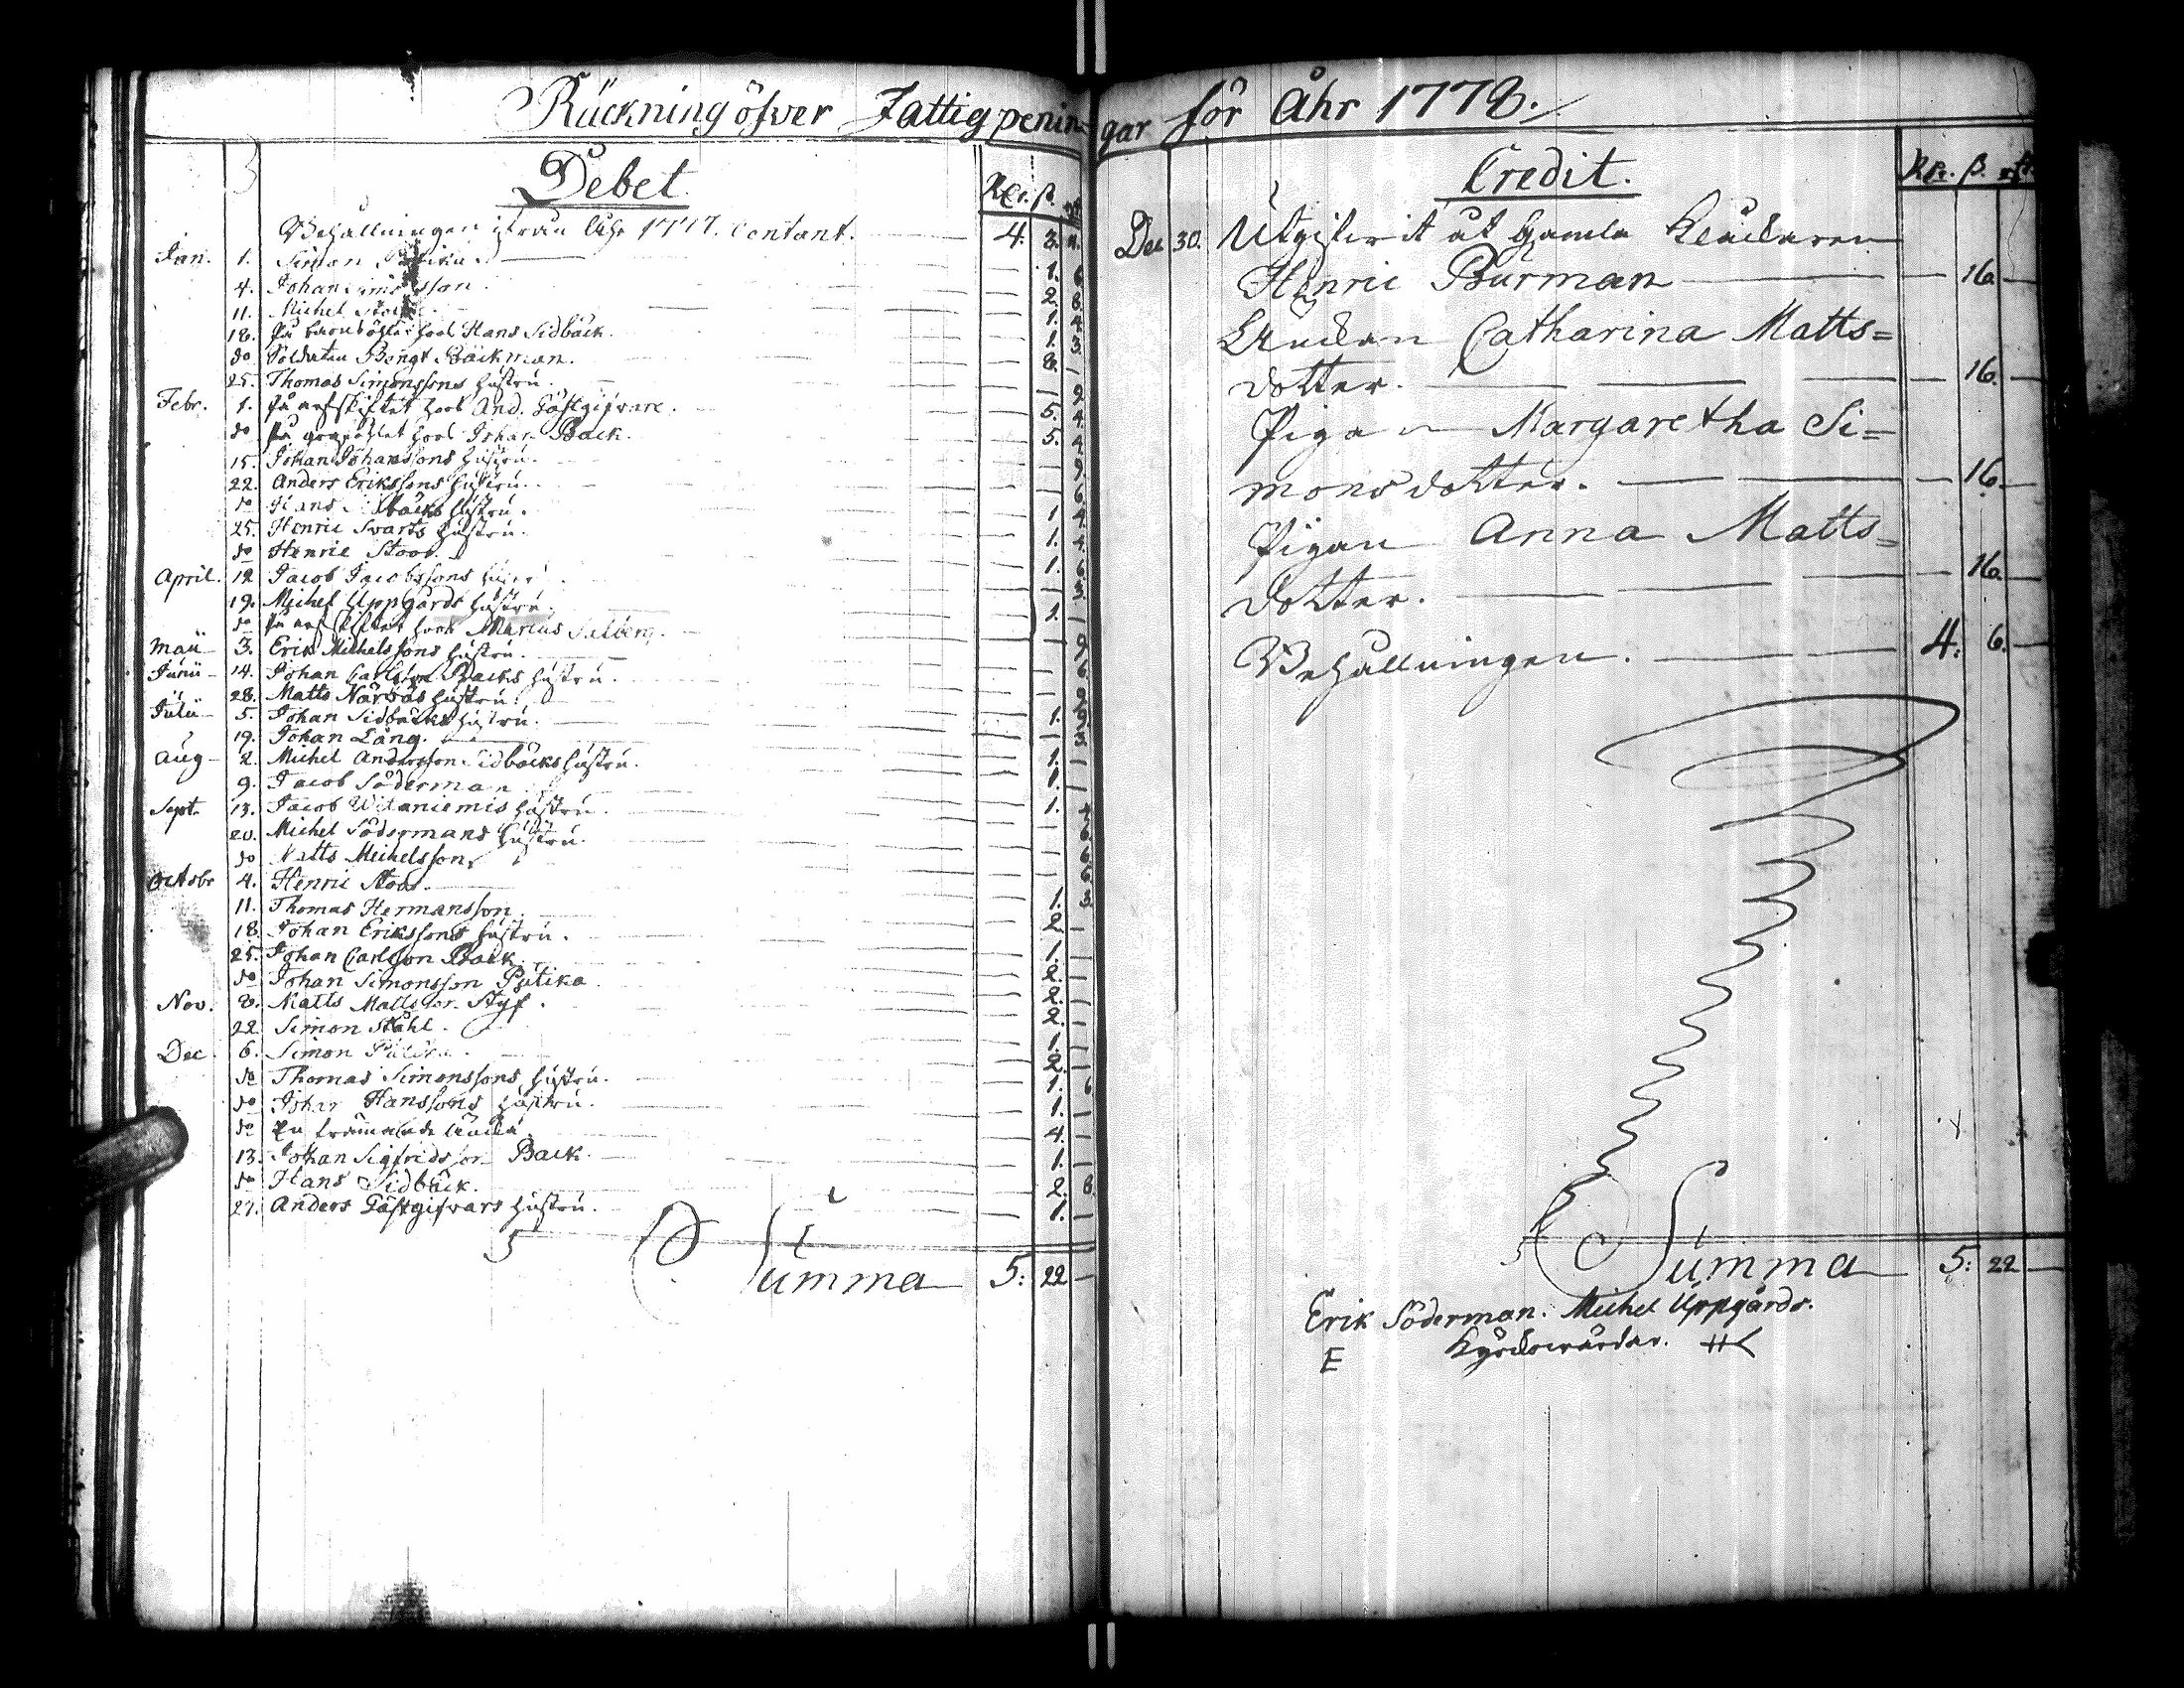 Räckning öfver Fattigpenin-
gar för Åhr 1778.
Debet.
Rdr. ß. rst.
Behållningen ifrån Åhr 1777. Contant. 4. 3. 11.
Jan. 1. Simon 1. 6
4. Johan 2. 8.
11. Michel 1. 4
18. På barnsölet hos Hans Sidbäck. 1. 3.
do Soldaten Bengt Bäckman. 8. —
25. Thomas Simonssons hustru. — 9
Febr. 1. På arfskiftet hos And. Gästgifvare. 5. 4.
do På grafölet hos Johan Back. 5. 4
15. Johan Johanssons hustru. — 9
22. Anders Erikssons hustru. — 6
do Hans Sidbäcks hustru. 1. 4
25. Henric Svarts hustru. 1. 4.
do Henric Stoor. 1. 6
April. 12 Jacob Jacobssons hustru — 3.
19. Michel Uppgårds hustru. 1. —
do På arfskiftet hos Marcus Salberg. — 9
Maii 3. Erik Michelssons hustru. — 6
Junii 14. Johan Carlsson Backs hustru.
28. Matts Närvås hustru.
Julii 5. Johan Sidbäcks hustru. 1.
19. Johan Lång. — 3
Aug 2. Michel Andersson Sidbäcks hustru. 1. —
9. Jacob Söderman 1. —
Sept. 13. Jacob Witaniemis hustru. 1. 4
20. Michel Södermans hustru. — 6
do Matts Meihelsson — 6
Octobr 4. Henric Stoor. — 6
11. Thomas Hermansson. 1. 3
18. Johan Erikssons hustru. 2 —
25. Johan Carlsson Back. 1. —
do Johan Simonsson Putika 2. —
Nov. 8. Matts Mattsson Styf. 2. —
22 Simon Ståhl. 2. —
Dec. 6. Simon 1. —
do Thomas Simonssons hustru. 2. —
do Johan Hanssons hustru. 1. 6
do En främande 1. —
13. Johan Sigfridsson Back. 4. —
do Hans Sidbäck. 1. —
27. Anders Gästgifvars hustru. 2. 8.
1. —
Summa 5: 22 —
Credit.
Rdr. ß. rst.
Dec 30. Utgifvit åt gamla Klåckaren
Henric Burman — 16 —
Enckan Catharina Matts=
dotter. — 16. —
Pigan Margaretha Si=
monsdotter. — 16. —
Pigan Anna Matts=
dotter. — 16. —
Behållningen. 4: 6. —
Summa 5: 22 —
Erik Söderman. Michel Uppgårds.
E Kyrkovärdar.